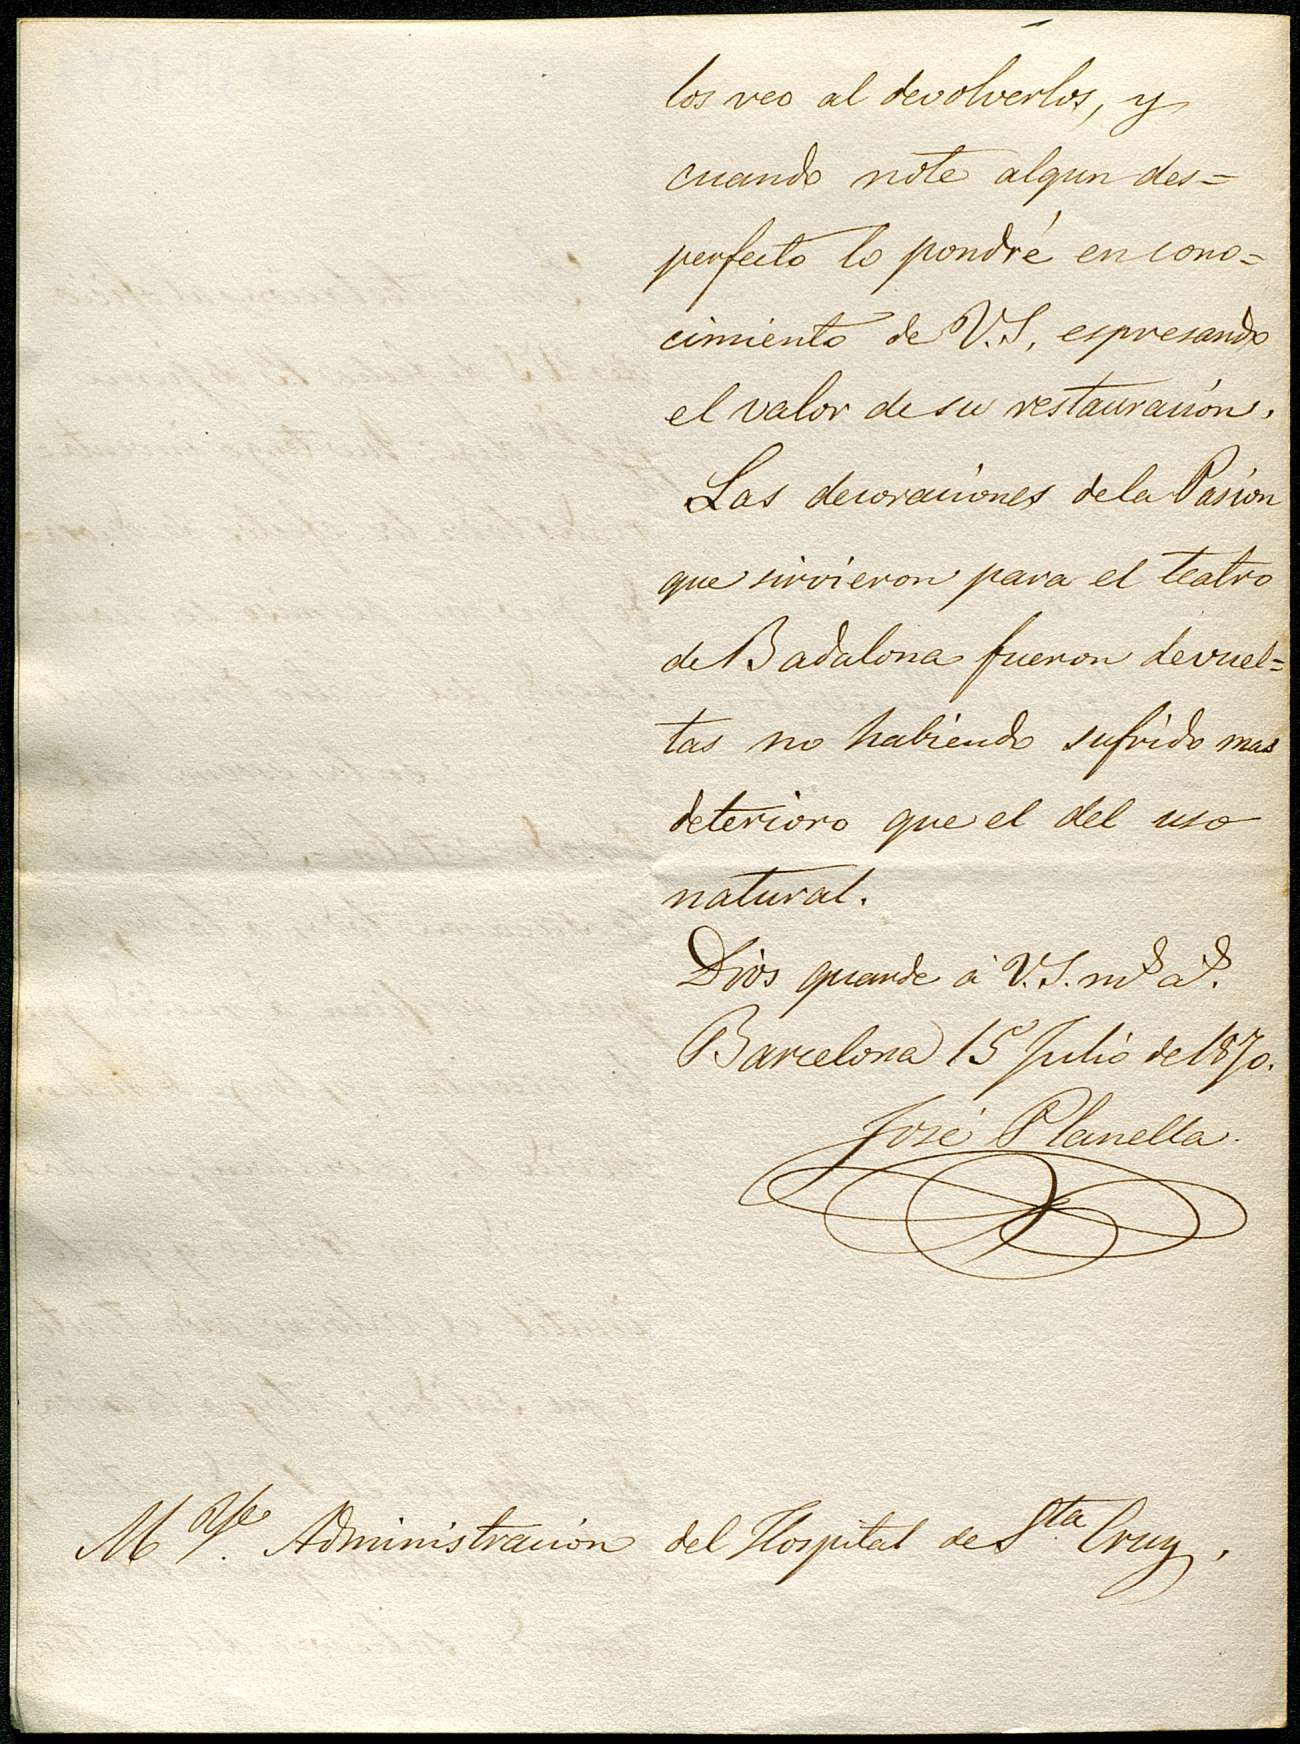 los veo al devolverlos, y
cuando note algun des=
perfecto lo pondré en cono=
cimiento de V.S, espresando
el valor de su restauración.
Las decoraciones de la Pasion
que sirvieron para el teatro
de Badalona fueron devuel=
tas no habiendo sufrido mas
deterioro que el del uso
natural.
Dios guarde á V.S. ms. as.
Barcelona 15 Julio de 1870.
José Planella.
M. Ye. Administracion del Hospital de Sta. Cruz.